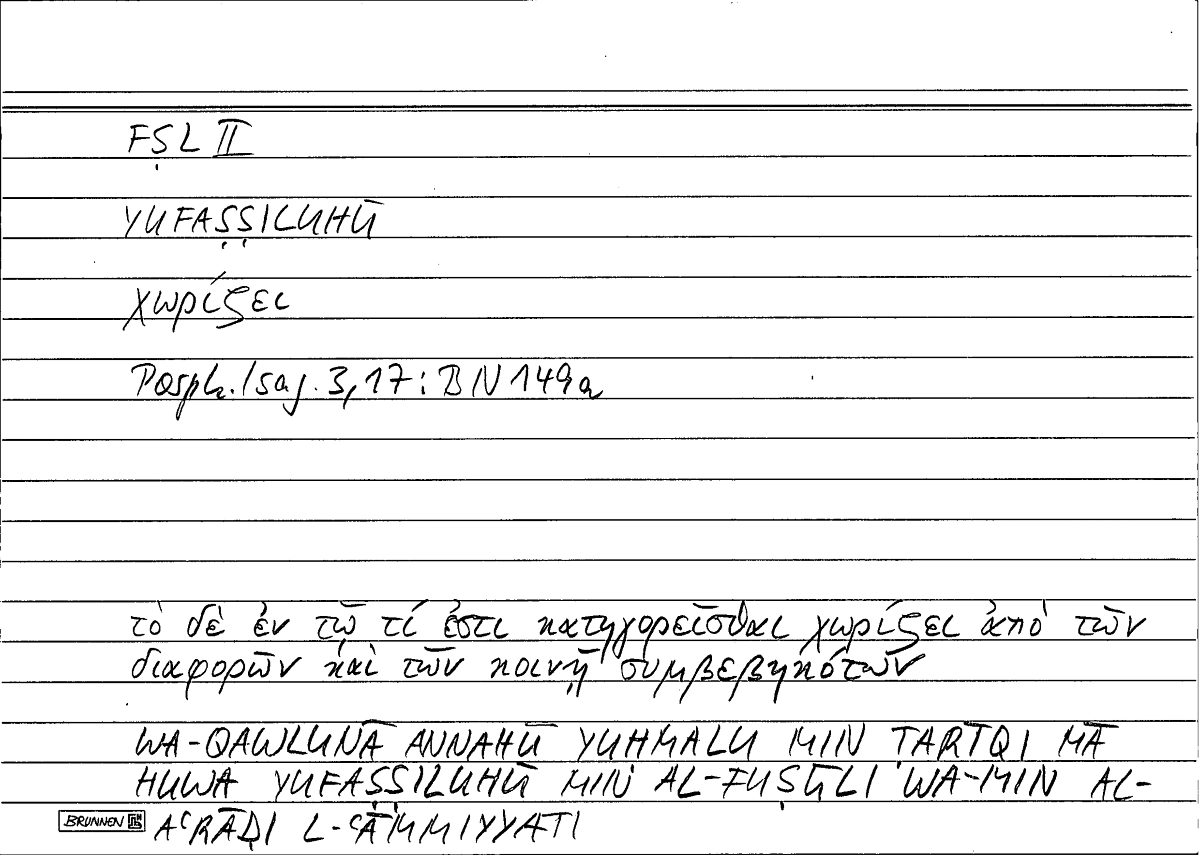 FṢL II
YUFAṢṢILUHŪ
χωρίζει
Porph. Isag. 3,17: BN 149a
τὸ δὲ ἐν τῷ τί ἐστι κατηγορεῖσθαι χωρίζει ἀπὸ τῶν
διαφορῶν καὶ τῶν κοινῇ συμβεβηκότων
WA-QAWLUNĀ ANNAHŪ YUHMALU MIN ṬARĪQI MĀ
HUWA YUFAṢṢILUHŪ MIN AL-FUṢŪLI WA-MIN AL-
BRUNNEN AʿRĀḌI L-ʿĀMMIYYATI